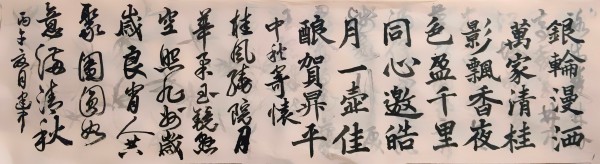 銀輪漫洒
萬家清桂
影飄香夜
色盈千里
同心邀皓
月一壺佳
釀賀昇平
中秋寄懷
桂風繞院月
華來玉鏡懸
空照九州歲
歲良宵人共
聚團圓如
意滿清秋
丙午夏月